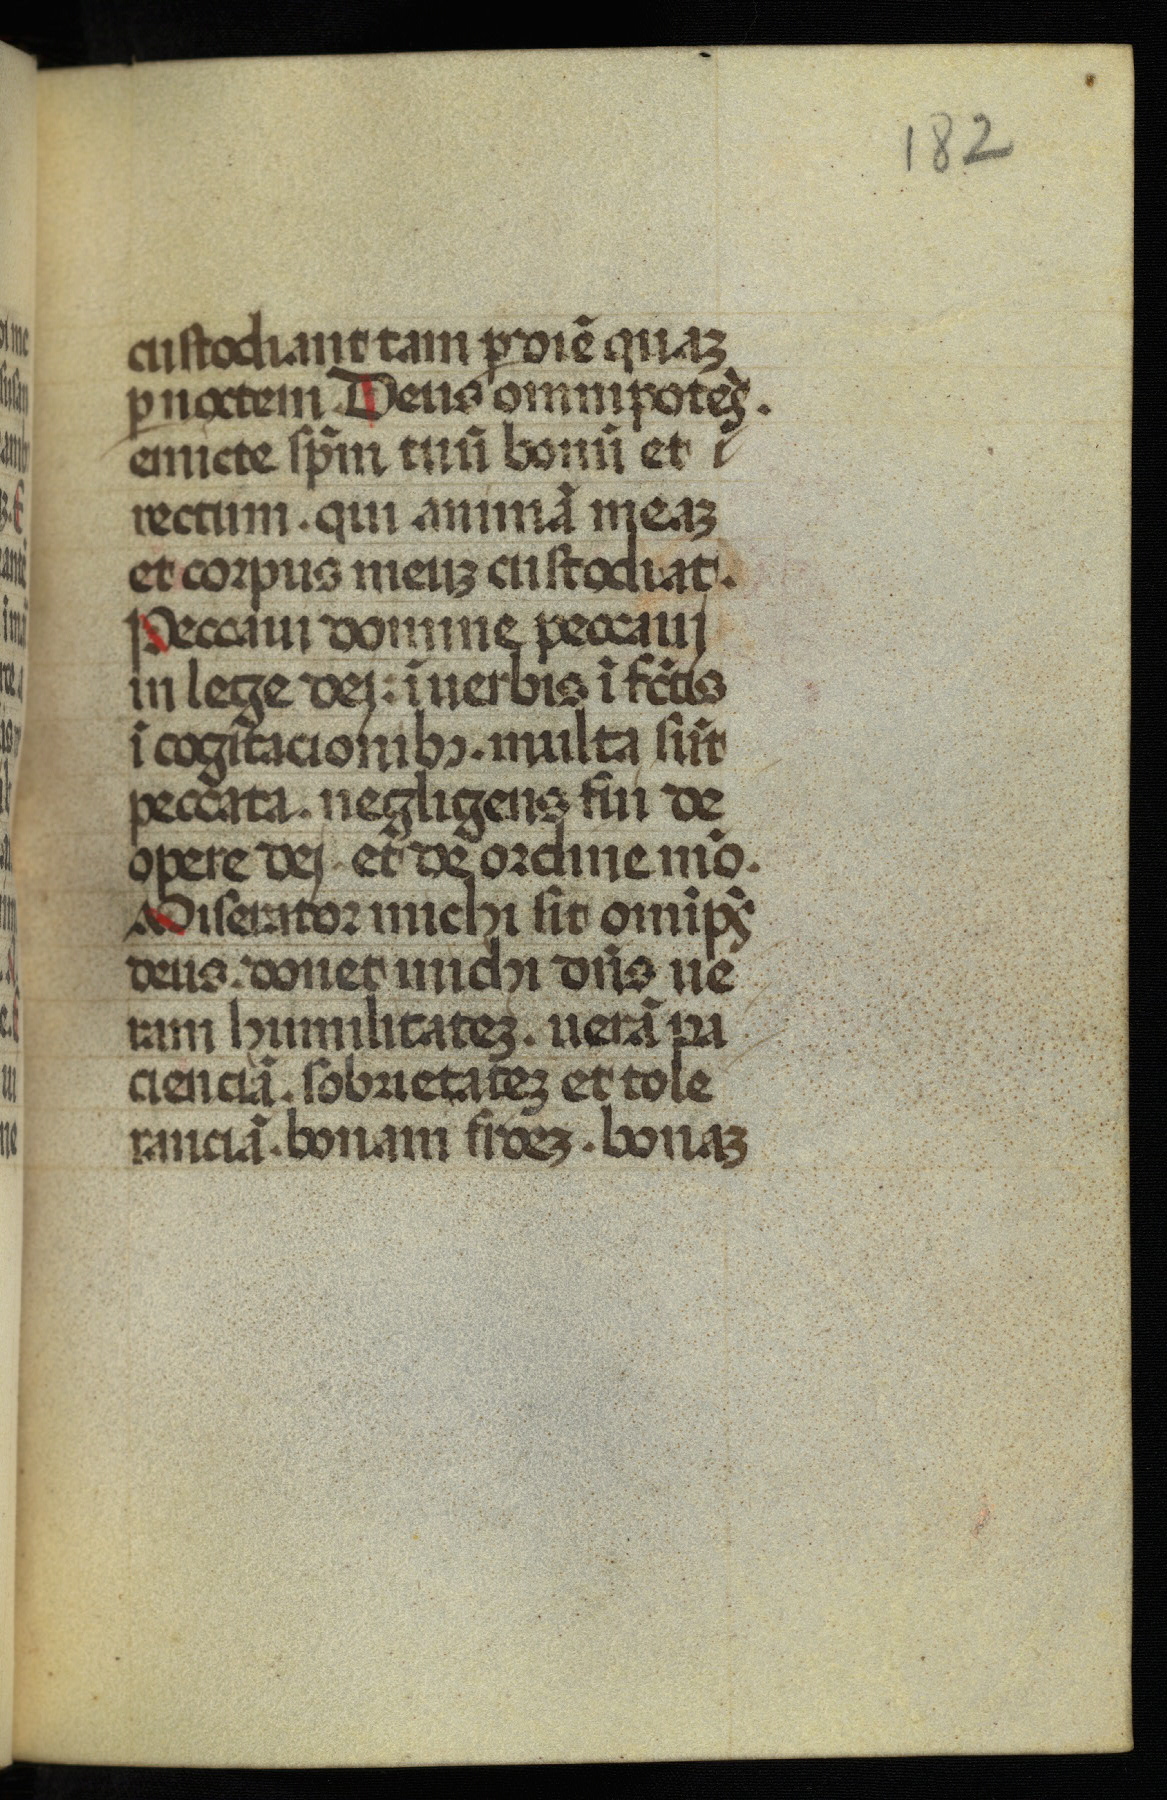 182
custodiant tam ꝑ diē quaꝫ
ꝑ noctem Deus omnipotēs.
emicte spm̄ tuū bonū et
rectum. qui animā meaꝫ
et corpus meuꝫ custodiat.
Peccaui domine peccaui
in lege dej: ī uerbis ī fc̄tis
ī cogitacionibꝫ. multa sūt
peccata. negligens fui de
opere dej et de ordine mō.
Miserator michi sit omīps
deus. donet michi dn̄s ue
ram humilitateꝫ. uerā pa
cienciā. sobrietateꝫ et tole
ranciā. bonam fideꝫ. bonaꝫ